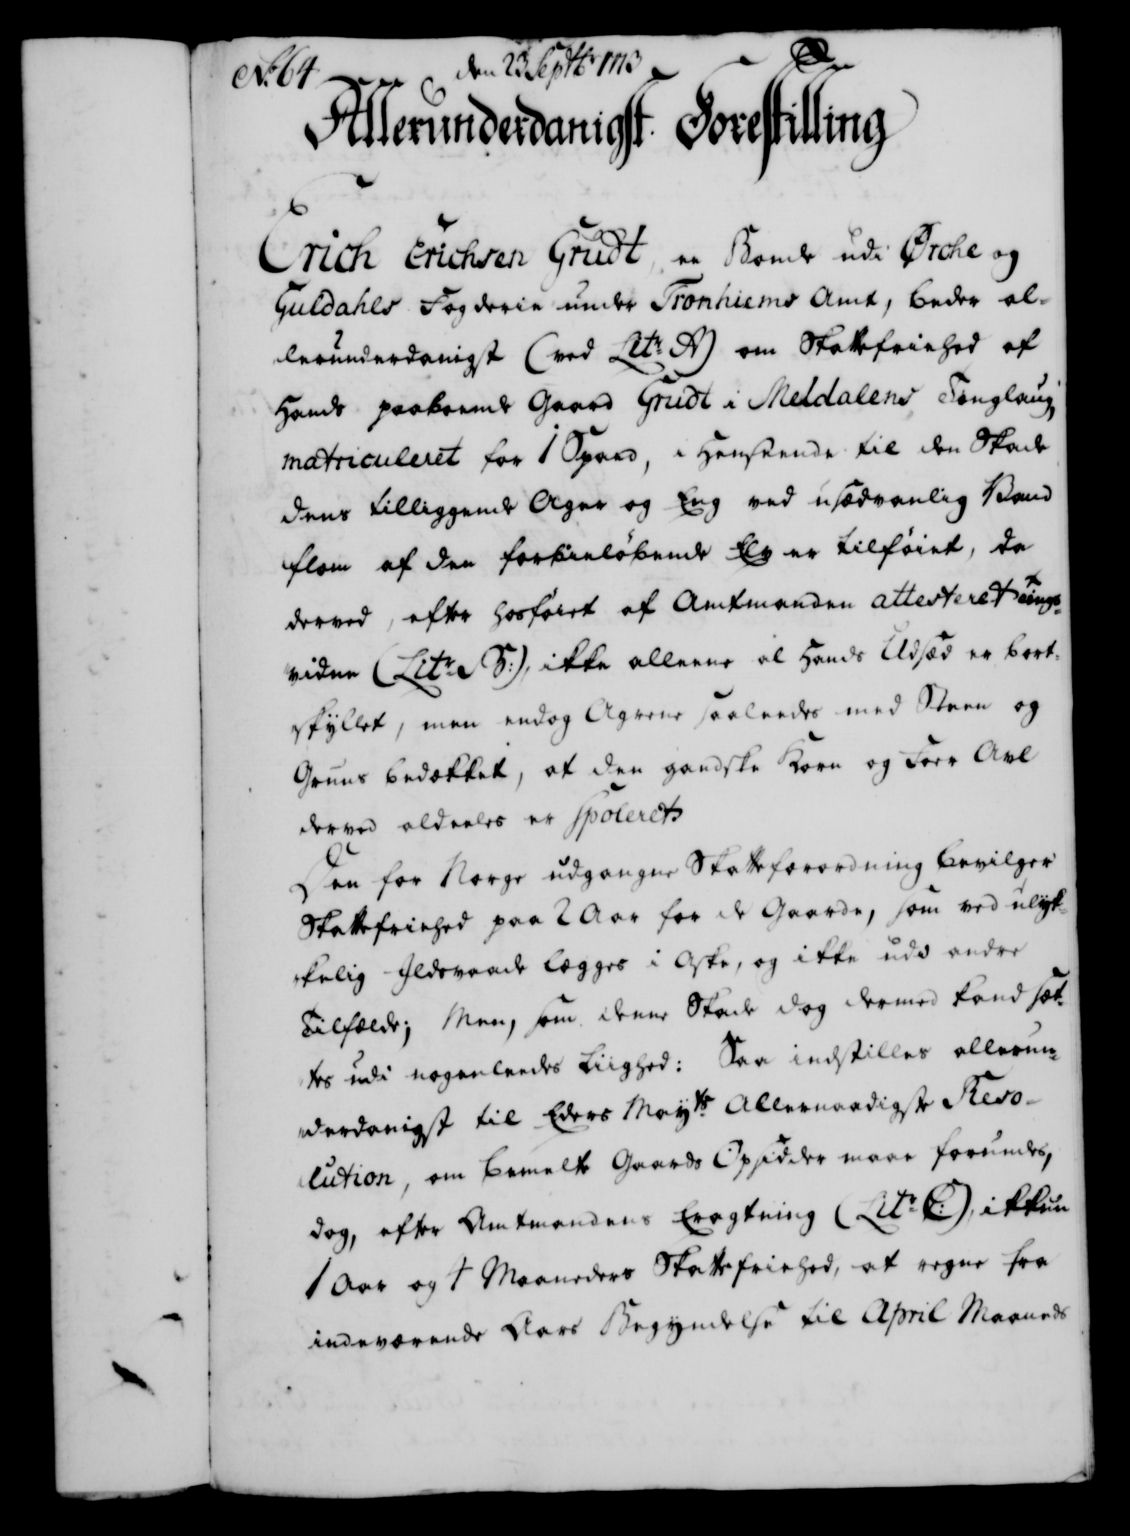 No. 64
den 23 Septbr 1773
Allerunderdanigst Forestilling
Erich Erichsen Grudt, en Bonde udi Ørche og
Guldahls Fogderie under Tronhiems Amt, beder al-
lerunderdanigst (ved Litr. A) om Skattefriehed af
Hands paaboende Gaard Grudt i Meldalens Tinglaug,
matriculeret for 1 Spand, i Henseende til den Skade
dens tilliggende Ager og Eng ved usædvanlig Vand
flom af den forbieløbende Elv er tilføiet, da
derved, efter hosføiet af Amtmanden attesteret Tings-
vidne (Litr. B:), ikke alleene al Hands Udsæd er bort-
skyllet, men endog Agrene saaleedes med Steen og
Gruus bedækket, at den gandske Korn og Foer Avl
derved aldeeles er spoleret.
Den for Norge udgangne Skatteforordning bevilger
Skattefriehed paa 2 Aar for de Gaarde, som ved ulyk-
kelig Ildsvaade lægges i Aske, og ikke udi andre
Tilfælde; Men, som denne Skade dog dermed kand sæt-
tes udi nogenleedes Liighed: Saa indstilles allerun-
derdanigst til Eders Mayts. Allernaadigste Reso-
lution, om bemelte Gaards Opsidder maae forundes,
dog, efter Amtmandens Eragtning (Litr. C:), ikkun
1 Aar og 4 Maaneders Skattefriehed, at regne fra
indeværende Aars Begyndelse til April Maaneds